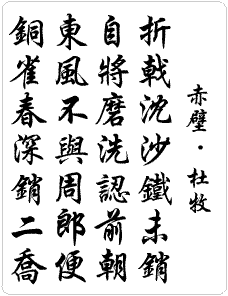 赤壁·杜牧
折戟沈沙鐵未銷
自將磨洗認前朝
東風不與周郎便
銅雀春深銷二喬